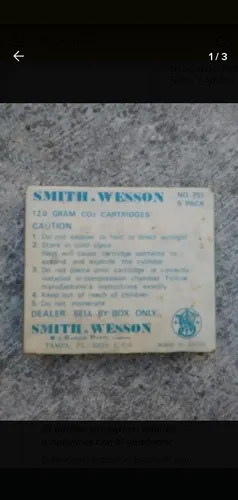 1/3
SMITH & WESSON
NO. 751
5 PACK
12.0 GRAM CO2 CARTRIDGES
CAUTION
1. Do not expose to heat or direct sunlight
2. Store in cool place
Heat will cause cartridge contents to
expand and explode the cylinder
3. Do not pierce until cartridge is correctly
installed in compression chamber. Follow
manufacturer's instructions exactly
4. Keep out of reach of children
5. Do not incinerate
DEALER SELL BY BOX ONLY
SMITH & WESSON
TAMPA, FL. U.S.A.
MADE IN